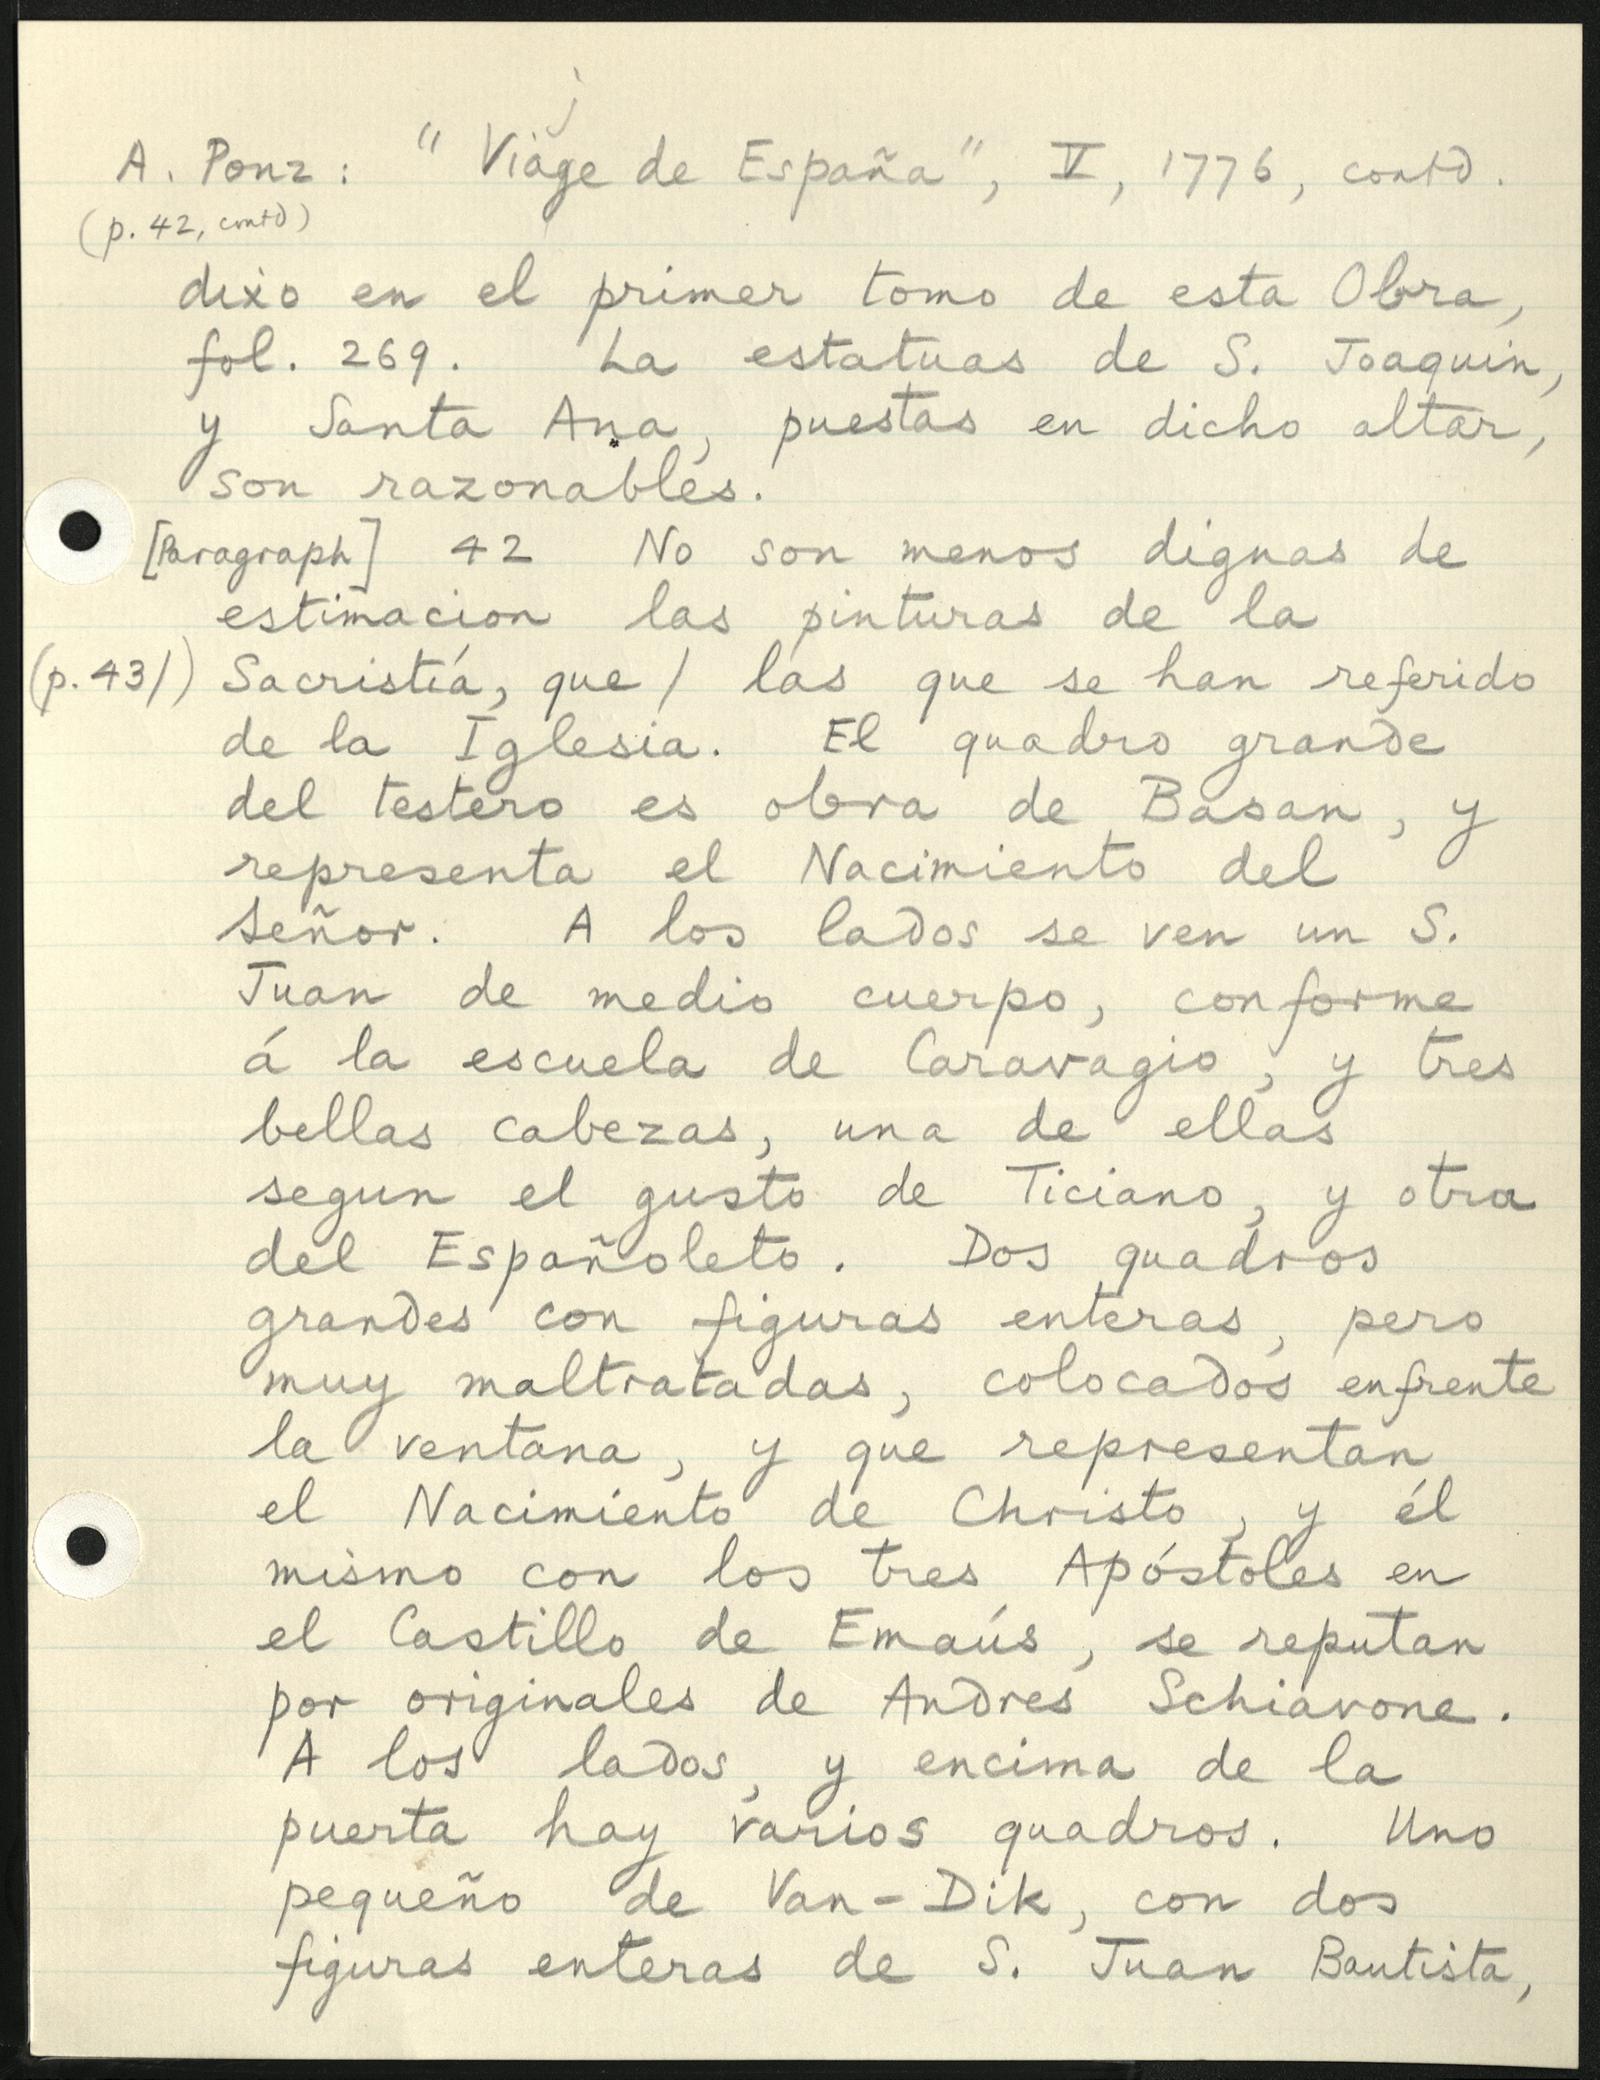 j
A. Ponz: "Viage de España", V, 1776, contd.
(p. 42, contd)
dixo en el primer tomo de esta Obra,
fol. 269. La estatuas de S. Joaquin,
y Santa Ana, puestas en dicho altar,
son razonables.
[Paragraph] 42 No son menos dignas de
estimacion las pinturas de la
(p. 43/) Sacristía, que / las que se han referido
de la Iglesia. El quadro grande
del testero es obra de Basan, y
representa el Nacimiento del
Señor. A los lados se ven un S.
Juan de medio cuerpo, conforme
á la escuela de Caravagio, y tres
bellas cabezas, una de ellas
segun el gusto de Ticiano, y otra
del Españoleto. Dos quadros
grandes con figuras enteras, pero
muy maltratadas, colocados enfrente
la ventana, y que representan
el Nacimiento de Christo, y él
mismo con los tres Apóstoles en
el Castillo de Emaús, se reputan
por originales de Andres Schiavone.
A los lados, y encima de la
puerta hay varios quadros. Uno
pequeño de Van-Dik, con dos
figuras enteras de S. Juan Bautista,